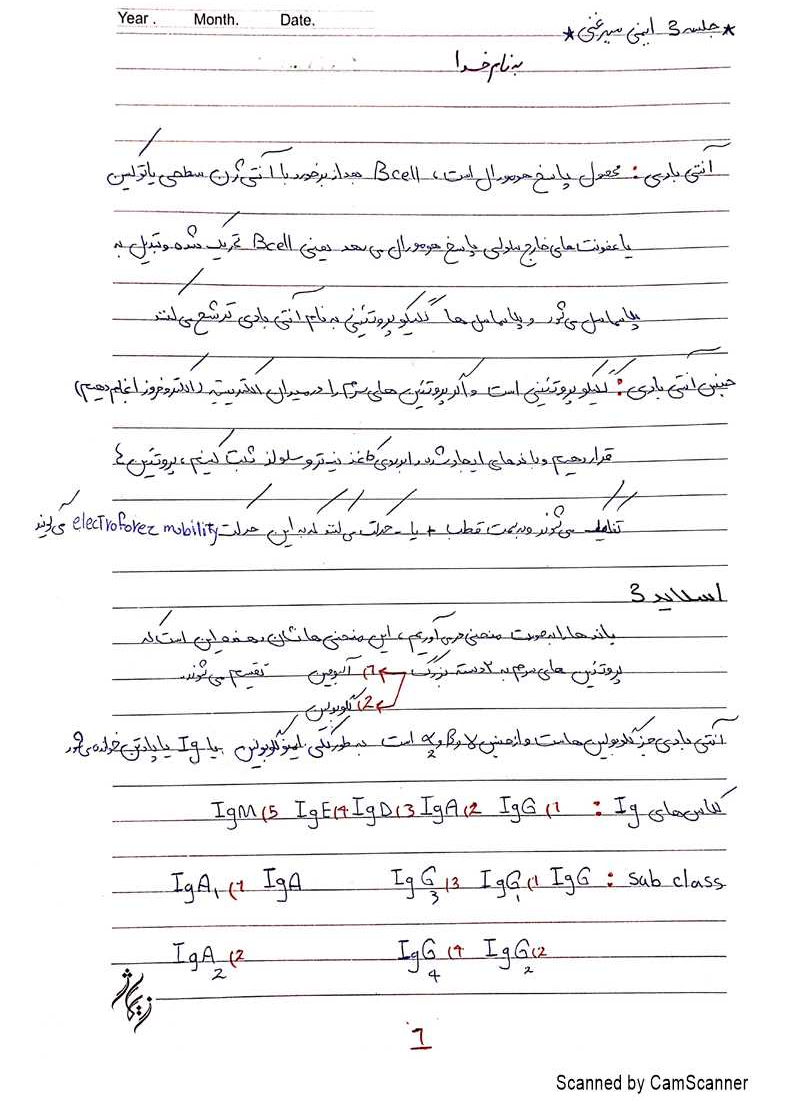 Year . Month. Date.
★ جلسه 3 ایمنی میرغنی ★
به نام خدا
آنتی بادی : محصول پاسخ هومورال است، B cell بعد از برخورد با آنتی ژن سطحی یا توکسین
یا عفونت های خارج سلولی پاسخ هومورال می دهد یعنی B cell تحریک شده و تبدیل به
پلاسماسل می شود و پلاسماسل ها گلیکوپروتئینی به نام آنتی بادی ترشح می کنند
جنس آنتی بادی : گلیکوپروتئینی است و اگر پروتئین های سرم را در میدان الکتریسیته (الکتروفروز انجام دهیم)
قرار دهیم و باندهای ایجاد شده را بر روی کاغذ نیتروسلولز ثبت کنیم، پروتئین ها
تفکیک می شوند و به سمت قطب + یا - حرکت می کنند که به این حرکت electroforez mobility می گویند
اسلاید 3
باندها را به صورت منحنی در می آوریم، این منحنی ها نشان دهنده این است که
پروتئین های سرم به 2 دسته بزرگ 1) آلبومین تقسیم می شوند.
2) گلوبولین
آنتی بادی جز گلوبولین هاست و از جنس γ و β و α₂ است به طور کلی ایمنوگلوبولین یا Ig یا پادتن خوانده می شود
کلاس های Ig : 1) IgG 2) IgA 3) IgD 4) IgE 5) IgM
sub class : IgG 1) IgG₁ 3) IgG₃ IgA 1) IgA₁
2) IgG₂ 4) IgG₄ 2) IgA₂
1
Scanned by CamScanner